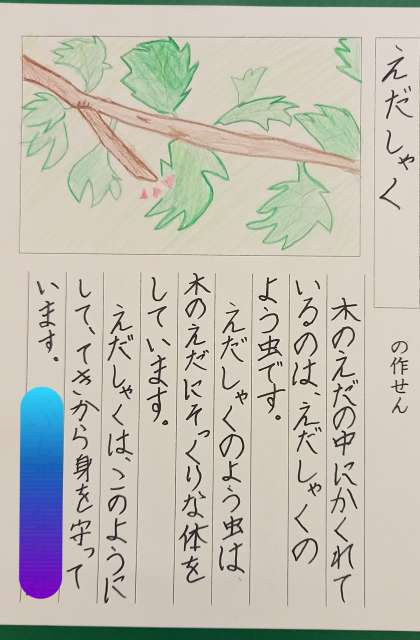 えだしゃく
の作せん
木のえだの中にかくれて
いるのは、えだしゃくの
よう虫です。
えだしゃくのよう虫は、
木のえだにそっくりな体を
しています。
えだしゃくは、このように
して、てきから身を守って
います。